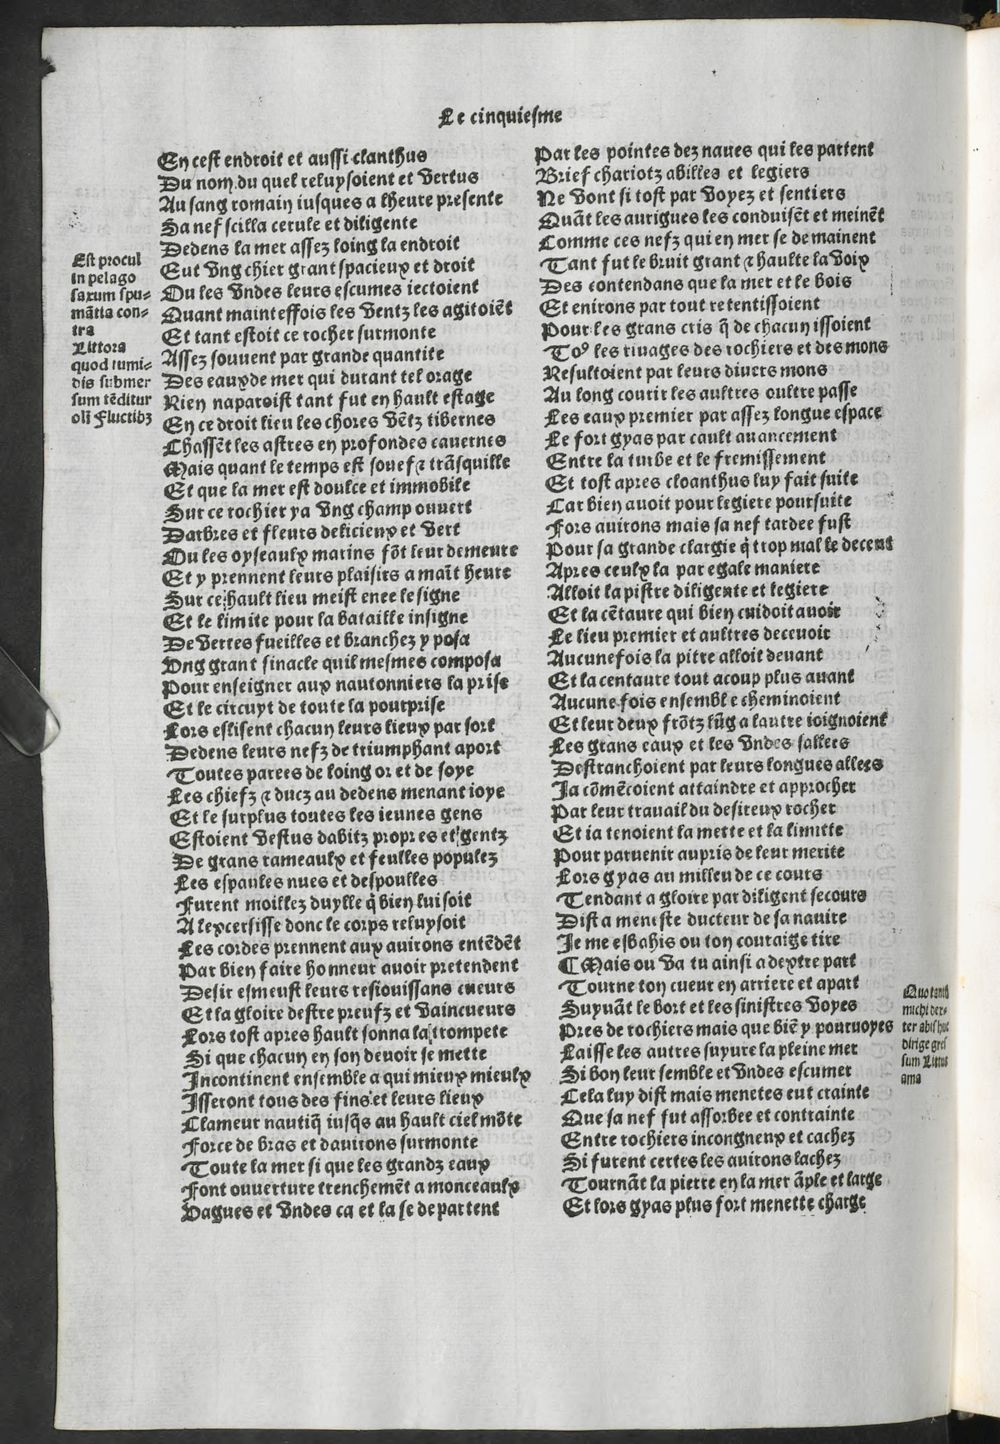 Le cinquiesme
En cest endroit et aussi clanthus
Du nom du quel reluysoient et vertus
Au sang romain iusques a lheure presente
Sa nef scilla cerule et diligente
Dedens la mer assez loing la endroit
Eut vng chier grant spacieux et droit
Ou les vndes leurs escumes iectoient
Quant mainteffois les ventz les agitoiẽt
Et tant estoit ce rocher surmonte
Assez souuent par grande quantite
Des eaux de mer qui durant tel orage
Rien naparoist tant fut en hault estage
En ce droit lieu les chores vẽtz tibernes
Chassẽt les astres en profondes cauernes
Mais quant le temps est souef ⁊ trãsquille
Et que la mer est doulce et immobile
Sur ce rochier ya vng champ ouuert
Darbres et fleurs delicieux et vert
Ou les oyseaulx marins fõt leur demeure
Et y prennent leurs plaisirs a maĩt heure
Sur ce hault lieu meist enee le signe
Et le limite pour la bataille insigne
De vertes fueilles et branchez y posa
Vng grant sinacle quil mesmes composa
Pour enseigner aux nautonniers la prise
Et le circuyt de toute la pourprise
Lors eslisent chacun leurs lieux par sort
Dedens leurs nefz de triumphant aport
Toutes parees de loing or et de soye
Les chiefz ⁊ ducz au dedens menant ioye
Et le surplus toutes les ieunes gens
Estoient vestus dabitz propres et gentz
De grans rameaulx et feulles populez
Les espaules nues et despoulles
Furent moillez duylle q̃ bien luisoit
A lexcersisse donc le corps reluysoit
Les cordes prennent aux auirons entẽdẽt
Par bien faire honneur auoir pretendent
Desir esmeust leurs resiouissans cueurs
Et la gloire destre preufz et vaincueurs
Lors tost apres hault sonna la trompete
Si que chacun en son deuoir se mette
Incontinent ensemble a qui mieux mieulx
Isseront tous des fins et leurs lieux
Clameur nautiq̃ iusq̃s au hault ciel mõte
Force de bras et dauirons surmonte
Toute la mer si que les grandz eaux
Font ouuerture trenchemẽt a monceaulx
Vagues et vndes ca et la se departent
Est procul
in pelago
saxum spu-
mãtia con-
tra
Littora
quod tumi-
dis submer
sum tẽditur
oli᷑ fluctibꝫ
Par les pointes dez naues qui les partent
Brief chariotz abilles et legiers
Ne vont si tost par voyez et sentiers
Quãt les aurigues les conduisẽt et meinẽt
Comme ces nefz qui en mer se demainent
Tant fut le bruit grant ⁊ haulte la voix
Des contendans que la mer et le bois
Et enirons par tout retentissoient
Pour les grans cris q̃ de chacun issoient
Toꝰ les riuages des rochiers et des mons
Resultoient par leurs diuers mons
Au long courir les aultres oultre passe
Les eaux premier par assez longue espace
Le fort gyas par cault auancement
Entre la turbe et le fremissement
Et tost apres cloanthus luy fait suite
Car bien auoit pour legiere poursuite
Fors auirons mais sa nef tardee fust
Pour sa grande clargie q̃ trop mal le deceut
Apres ceulx la par egale maniere
Alloit la pistre diligente et legiere
Et la cẽtaure qui bien cuidoit auoir
Le lieu premier et aultres deceuoir
Aucunefois la pitre alloit deuant
Et la centaure tout acoup plus auant
Aucune fois ensemble cheminoient
Et leur deux frõtz lũg a lautre ioignoient
Les grans eaux et les vndes sallees
Destranchoient par leurs longues allees
Ja cõmẽcoient attaindre et approcher
Par leur trauail du desireux rocher
Et ia tenoient la mette et la limitte
Pour paruenir aupris de leur merite
Lors gyas au milleu de ce cours
Tendant a gloire par diligent secours
Dist a meneste ducteur de sa nauire
Je me esbahis ou ton couraige tire
¶ Mais ou va tu ainsi a dextre part
Tourne ton cueur en arriere et apart
Suyuãt le bort et les sinistres voyes
Pres de rochiers mais que biẽ y pouruoyes
Laisse les autres suyure la pleine mer
Si bon leur semble et vndes escumer
Cela luy dist mais menetes eut crainte
Que sa nef fut assorbee et contrainte
Entre rochiers incongneux et cachez
Si furent certes les auirons lachez
Tournãt la pierre en la mer ãple et large
Et lors gyas plus fort menette charge
Quo tantũ
michi dex-
ter abis huc
dirige gres
sum littus
ama